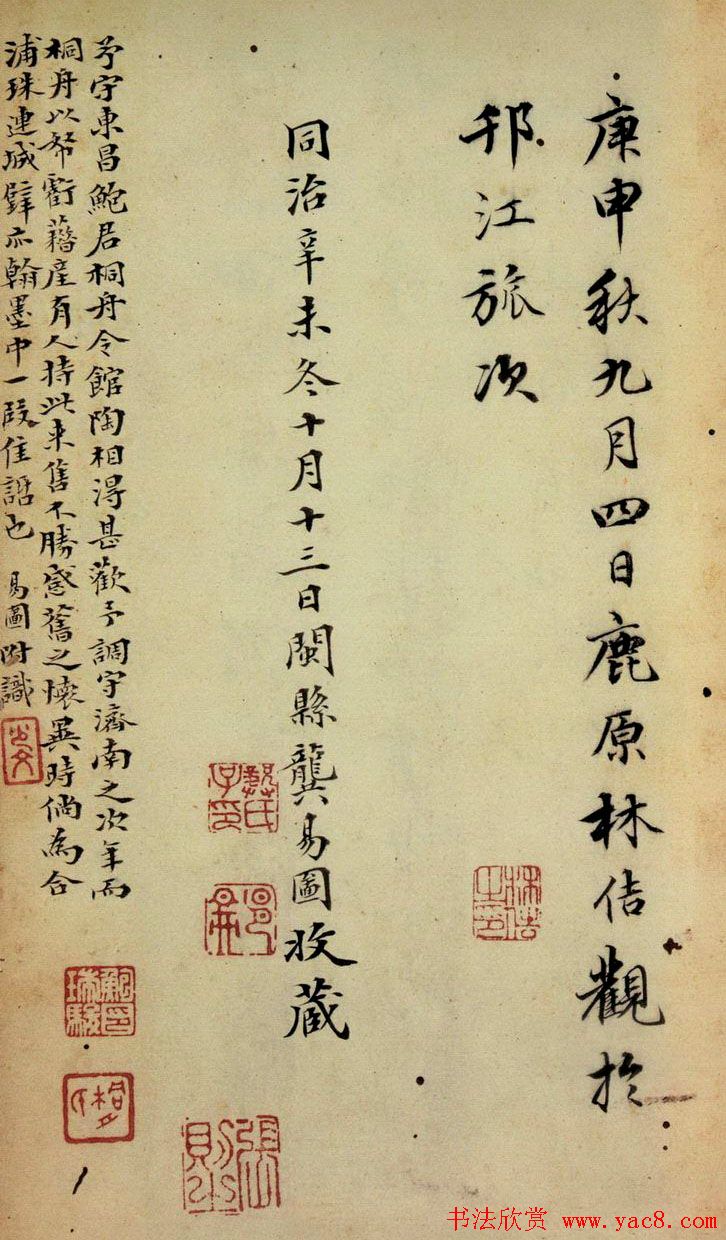 庚申秋九月四日鹿原林佶觀於
邗江旅次
同治辛未冬十月十三日閩縣龔易圖收蔵
予守東昌鮑君桐舟令館陶相得甚歡予調守濟南之次年而
桐舟以帑虧藉產有人持此来售不勝感舊之懷異時倘為合
浦珠連城璧亦翰墨中一段佳話也 易圖附識
林佶
之印
鮑印
瑔駿
張
則之
书法欣赏 www.yac8.com